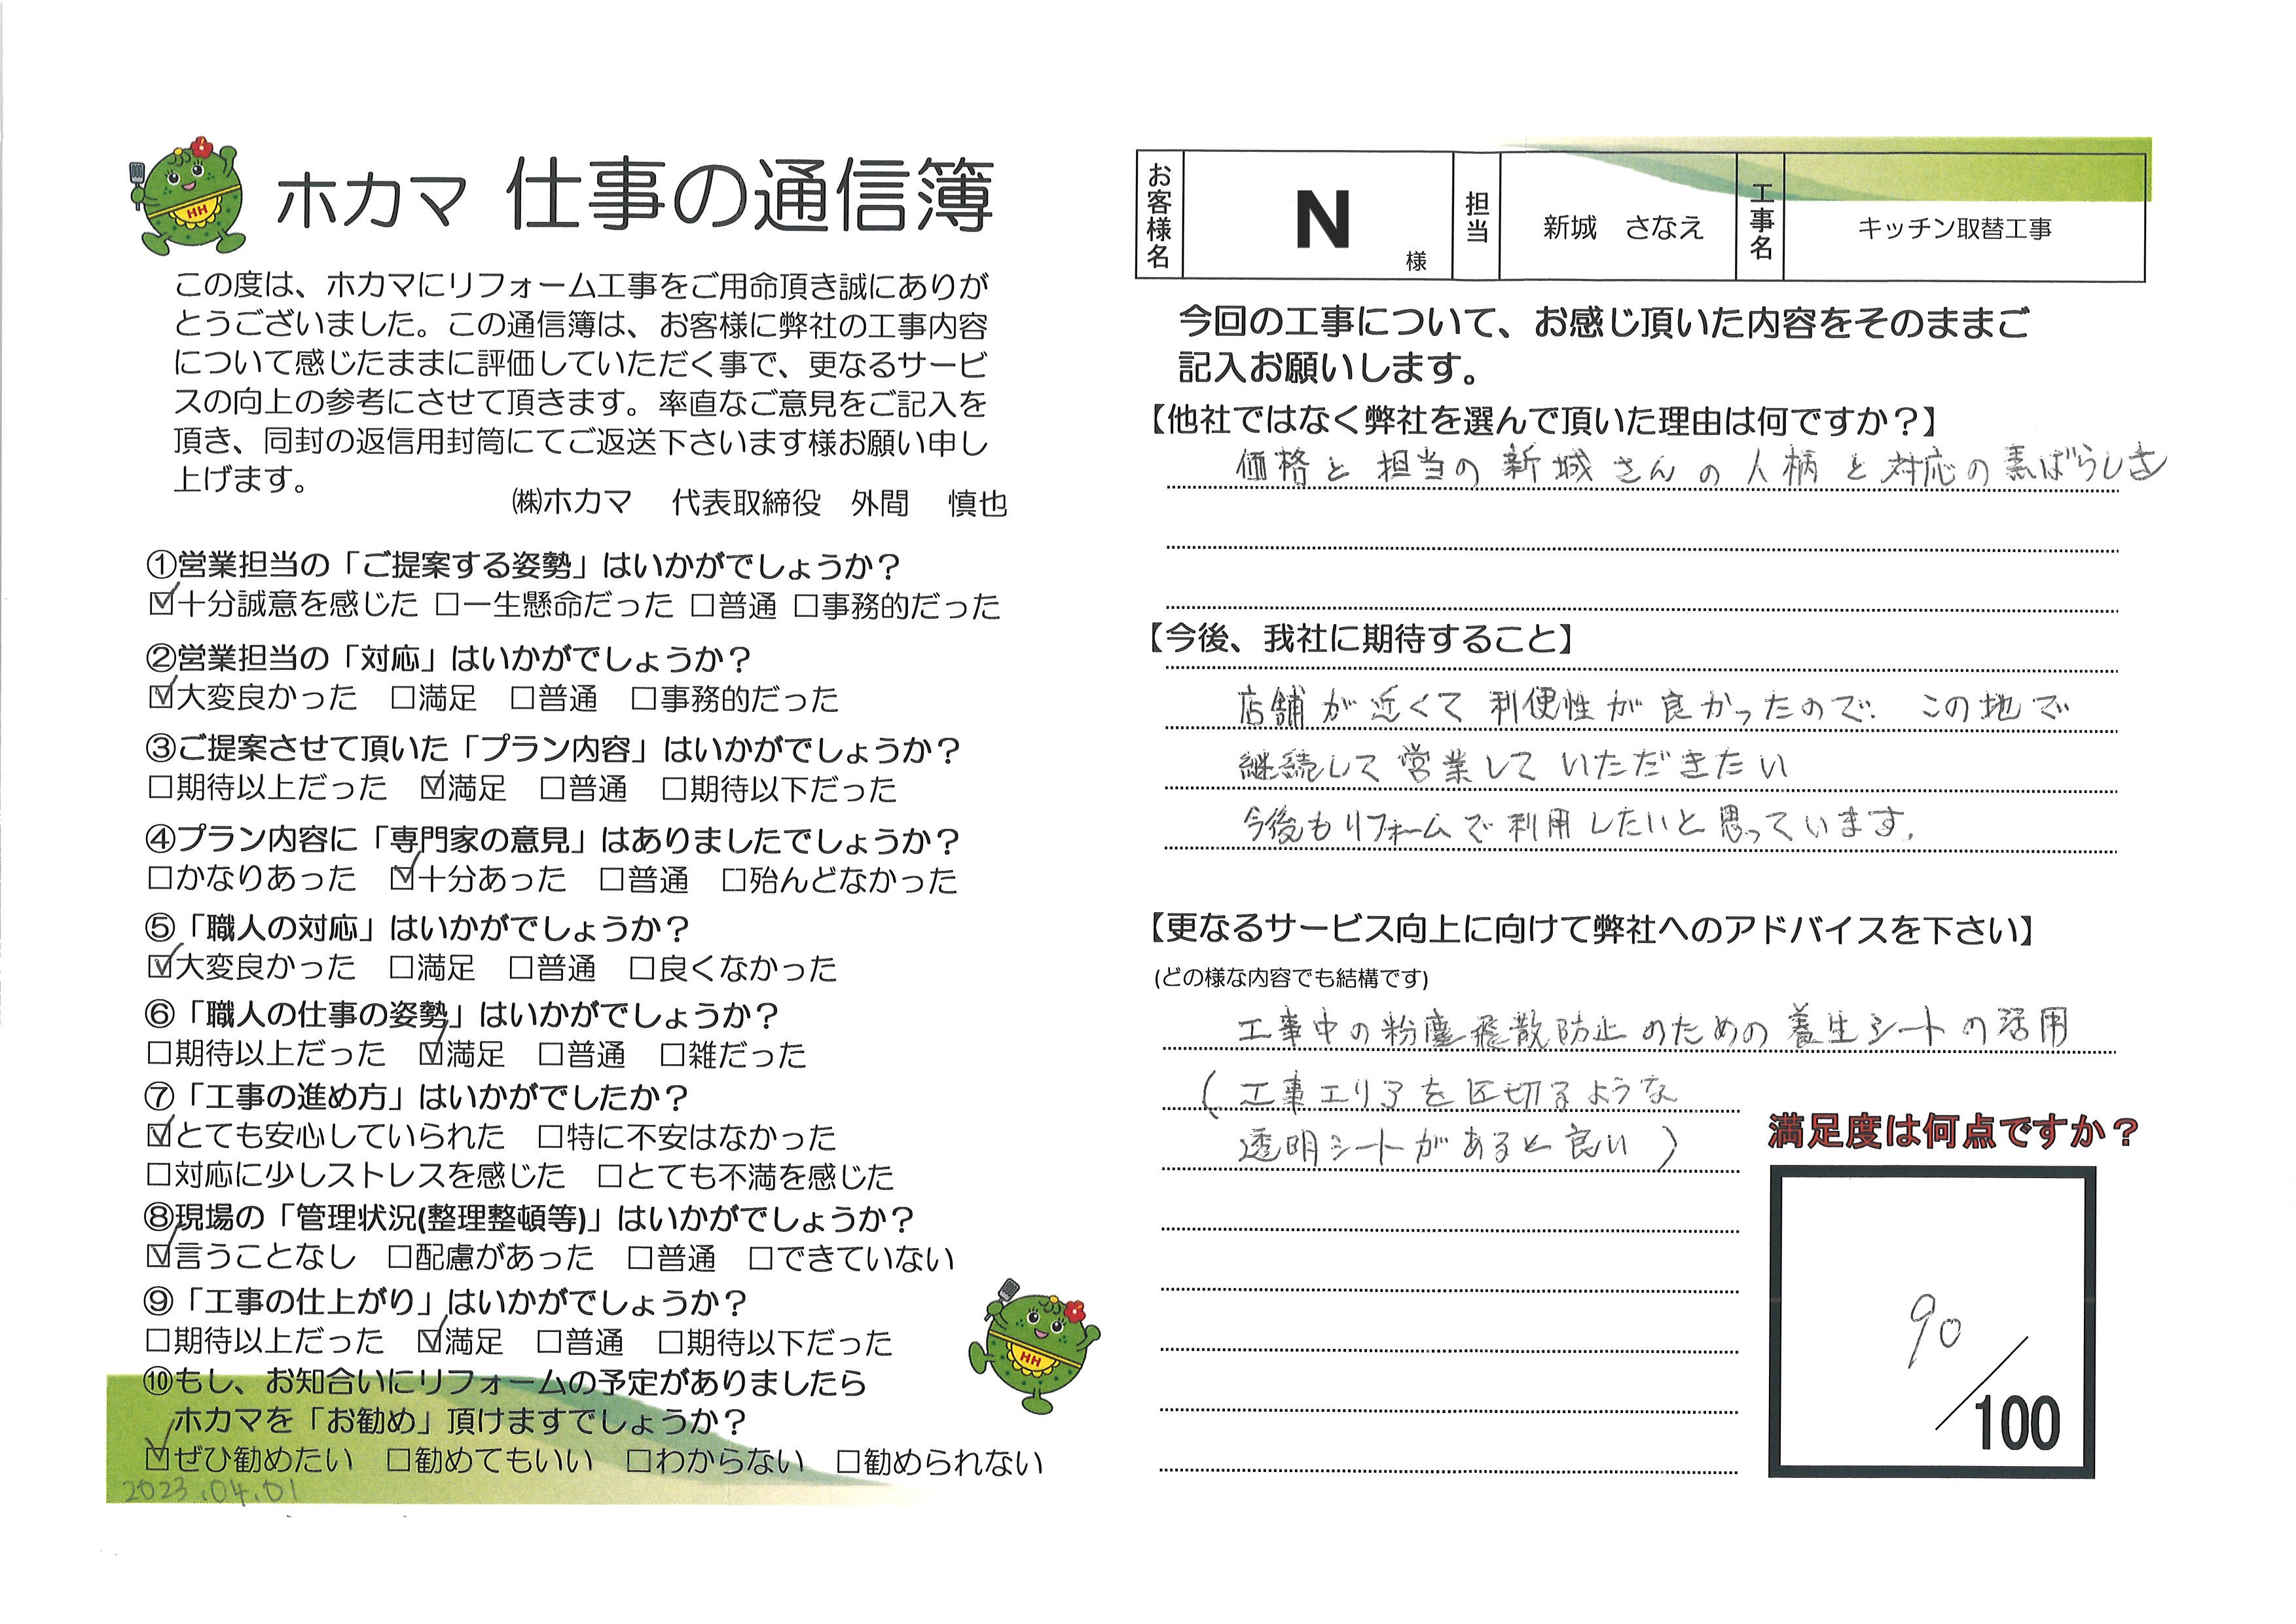 ホカマ 仕事の通信簿
この度は、ホカマにリフォーム工事をご用命頂き誠にありが
とうございました。この通信簿は、お客様に弊社の工事内容
について感じたままに評価していただく事で、更なるサービ
スの向上の参考にさせて頂きます。率直なご意見をご記入を
頂き、同封の返信用封筒にてご返送下さいます様お願い申し
上げます。
㈱ホカマ 代表取締役 外間 慎也
①営業担当の「ご提案する姿勢」はいかがでしょうか？
☑十分誠意を感じた □一生懸命だった □普通 □事務的だった
②営業担当の「対応」はいかがでしょうか？
☑大変良かった □満足 □普通 □事務的だった
③ご提案させて頂いた「プラン内容」はいかがでしょうか？
□期待以上だった ☑満足 □普通 □期待以下だった
④プラン内容に「専門家の意見」はありましたでしょうか？
□かなりあった ☑十分あった □普通 □殆んどなかった
⑤「職人の対応」はいかがでしょうか？
☑大変良かった □満足 □普通 □良くなかった
⑥「職人の仕事の姿勢」はいかがでしょうか？
□期待以上だった ☑満足 □普通 □雑だった
⑦「工事の進め方」はいかがでしたか？
☑とても安心していられた □特に不安はなかった
□対応に少しストレスを感じた □とても不満を感じた
⑧現場の「管理状況(整理整頓等)」はいかがでしょうか？
☑言うことなし □配慮があった □普通 □できていない
⑨「工事の仕上がり」はいかがでしょうか？
□期待以上だった ☑満足 □普通 □期待以下だった
⑩もし、お知合いにリフォームの予定がありましたら
ホカマを「お勧め」頂けますでしょうか？
☑ぜひ勧めたい □勧めてもいい □わからない □勧められない
2023.04.01
HH
HH
お客様名 N 様 担当 新城 さなえ 工事名 キッチン取替工事
今回の工事について、お感じ頂いた内容をそのままご
記入お願いします。
【他社ではなく弊社を選んで頂いた理由は何ですか？】
価格と担当の新城さんの人柄と対応の素ばらしさ
【今後、我社に期待すること】
店舗が近くて利便性が良かったので、この地で
継続して営業していただきたい
今後もリフォームで利用したいと思っています。
【更なるサービス向上に向けて弊社へのアドバイスを下さい】
(どの様な内容でも結構です)
工事中の粉塵飛散防止のための養生シートの活用
（工事エリアを区切るような
透明シートがあると良い）
満足度は何点ですか？
90/100